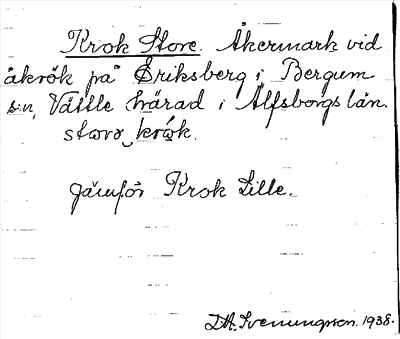 Krok Store. Åkermark vid
åkrök på Eriksberg i Bergum
s:n, Vättle härad i Älfsborgs län.
stora krok.
jämför Krok Lille.
D.A. Svenungson. 1938.